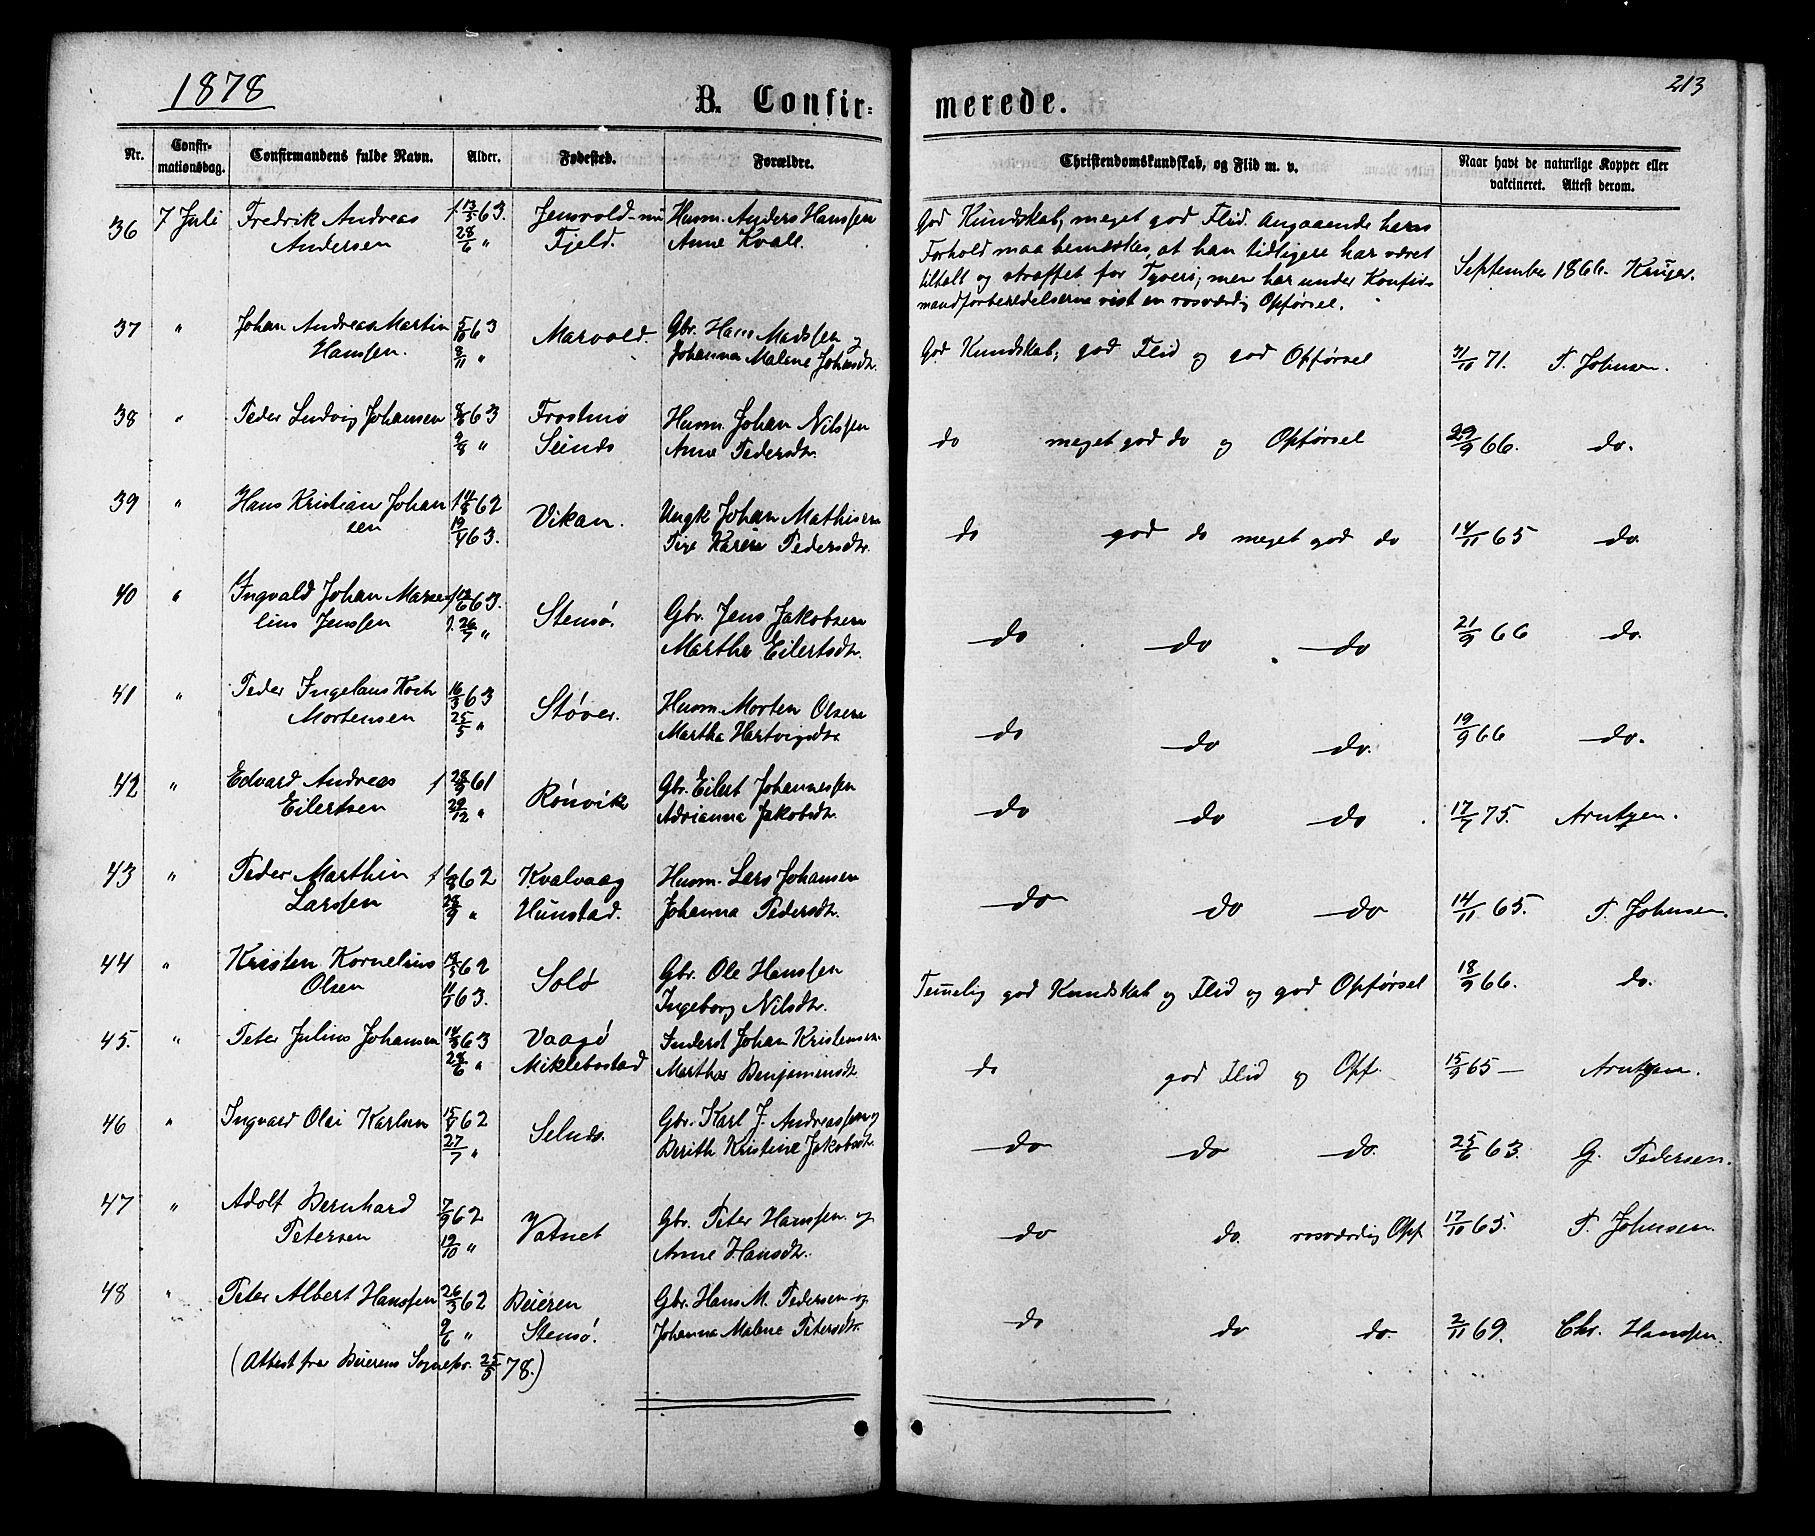 1878
213
B. Confir=
merede.
Nr. Confir-mationsdag. Confirmandens fulde Navn. Alder. Fødested. Forældre. Christendomskundskab, og Flid m. v. Naar havt de naturlige Kopper eller vakcineret. Attest derom.
36 7 Juli Fredrik Andreas 13/5 63. Jensvold Husm. Anders Hanssen God Kundskab, meget god Flid. Angaaende hans
Andersen 28/6 " Fjeld. Anne Kvale. Forhold maa bemærkes, at han tidligere har været
tiltalt og straffet for Tyveri; men har under Konfir- September 1866. Krüger.
mandforberedelserne vist en rosværdig Opførsel.
37 " Johan Andreas Martin 5/10 63 Marvold. Gbr. Hans Madssen og
Hanssen. 8/11 " Johanna Malene Johansdtr. God Kundskab, god Flid og god Opførsel 31/10 71. T. Johnsen.
38 " Peder Ludvig Johansen 8/8 63 Frostmo Husm. Johan Nilssen
9/9 " Seines Anne Pedersdtr. do meget god do og Opførsel 29/9 66. do.
39 " Hans Kristian Johan 14/8 62 Vikan. Ungk. Johan Mathisen
sen 19/4 63. Pige Karen Pedersdtr. do god do meget god do 14/11 65 do.
40 " Ingvald Johan Marse 12/6 63. Stensø. Gbr. Jens Jakobsen
lius Jenssen 26/7 " Martha Eilertsdtr. do do do 21/9 66 do.
41 " Peder Ingelaus Koch 16/3 63 Støver. Husm. Morten Olsen
Mortensen 25/5 " Martha Hartvigsdtr. do do do. 19/9 66 do.
42 " Edvard Andreas 28/9 61 Rønvik Gbr. Eilert Johannessen
Eilertsen 29/12 " Adrianna Jakobsdtr. do do do 17/7 75. Arntzen.
43 " Peder Marthin 62 Kvalvaag Husm. Lars Johansen
Larssen 28/9 " Hunstad. Johanna Pedersdtr. do do do 14/11 65. T. Johnsen.
44 " Kristen Kornelius 62 Solø Gbr. Ole Hanssen
Olsen 63. Ingeborg Nilsdtr. Temmelig god Kundskab og Flid og god Opførsel 18/9 66. do.
45. " Peter Julius Johansen 14/3 63 Vaagø Inderst Johan Kristensen
28/6 " Miklebostad Martha Benjaminsdtr. do god Flid og Opf. 15/9 65 — Arntzen.
46 " Ingvard Olai Karlsen 15/4 62 Selnes. Gbr. Karl J. Andreassen og
27/7 " Berith Kristine Jakobsdtr. do do do. 25/6 63. G. Pedersen.
47 " Adolf Bernhard 7/9 62 Vatnet Gbr. Peter Hanssen og
Petersen 19/10 " Anne Hansdtr. do do. rosværdig Opf. 17/10 65. T. Johnsen.
48 " Peter Albert Hanssen 26/3 62 Beieren Gbr. Hans M. Pedersen og
9/6 " Stensø. Johanna Malene Petersdtr. do do do. 2/11 69. Chr. Hanssen.
(Attest fra Beierens Sognepr. 25/5 78.)